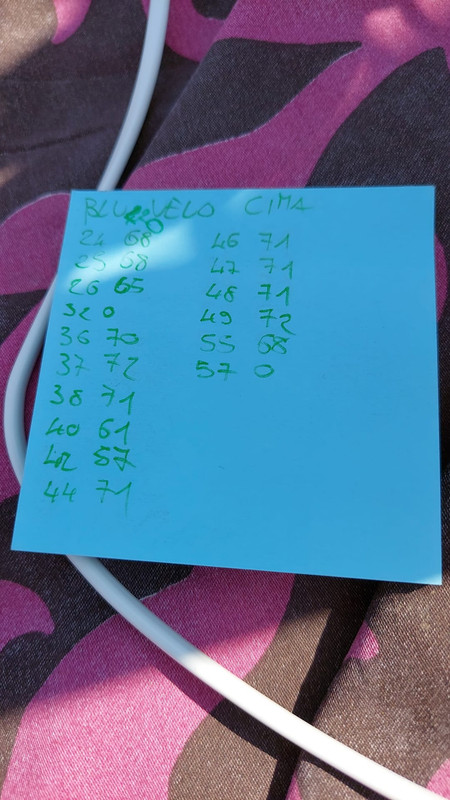 BLU VELO CIMA
20
24 68
25 68
26 65
32 0
36 70
37 72
38 71
40 61
42 57
44 71
46 71
47 71
48 71
49 72
55 68
57 0